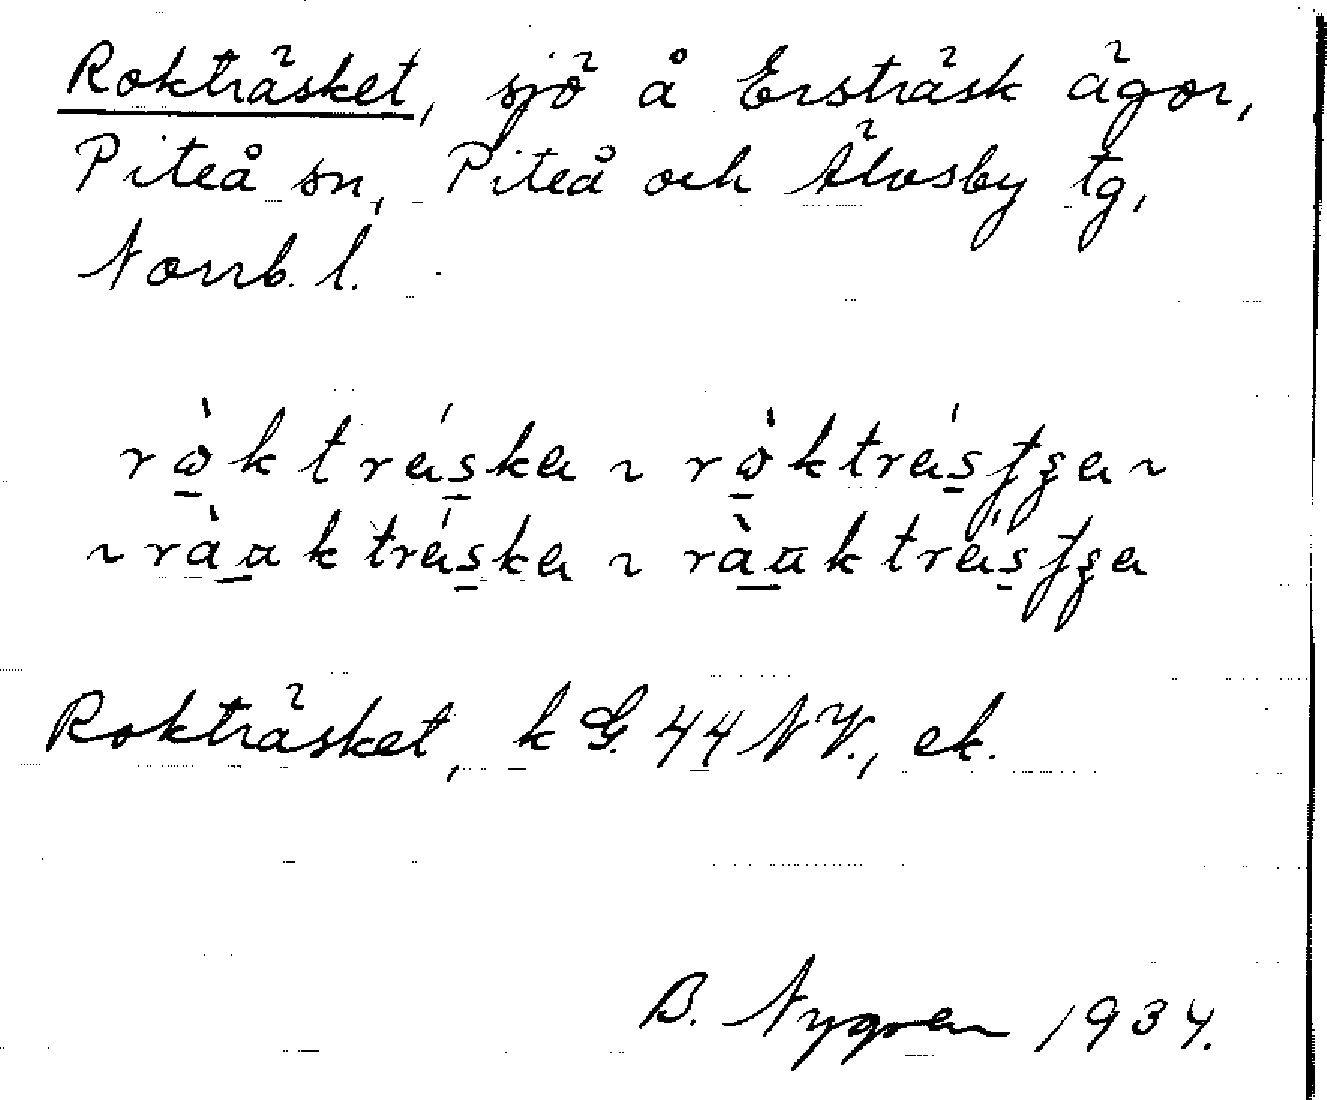 Rokträsket, sjö å Ersträsk ägor,
Piteå sn, Piteå och Älvsby tg,
Norrb. l.
rɷ̀ktráska ~ rɷ̀ktrásʃʂa ~
~ ràuktráska ~ ràuktrásʃʂa
Rokträsket, k G. 44 NV., ek.
B. Nygren 1934.